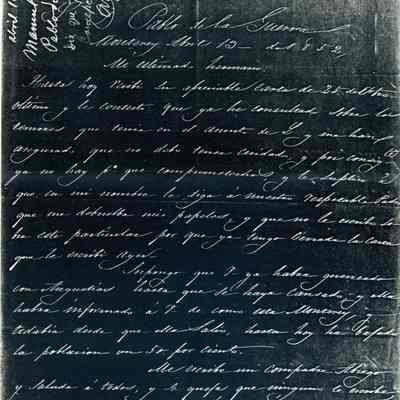 abril 1
Pablo de la Guerra
Monterey Abril 13 de 1852
Mi estimado hermano.
Hasta hoy recibi su apreciable carta de 25 de Febro
ultimo y le contesto que ya he consultado sobre los
temores que tenia en el asunto de y me han
asegurado que no debe tener cuidado, y por consigte
ya no hay pa que comprometerlas y le suplico
que en mi nombre le diga á nuestro respetable
que me debuelba mis papeles, y que no le escribo
en este particular por que ya tengo cerrada la carta
que le escribí ayer.
Supongo que V. ya habrá guerreado
con Angustias hasta que se haya cansado, y ella
habrá informado á V. de como esta Monterey,
todabia desde que ella salio, hasta hoy ha
la poblacion un 50 por ciento.
Me escribe mi compadre
y saluda á todos, y se queja que ninguno le escribe